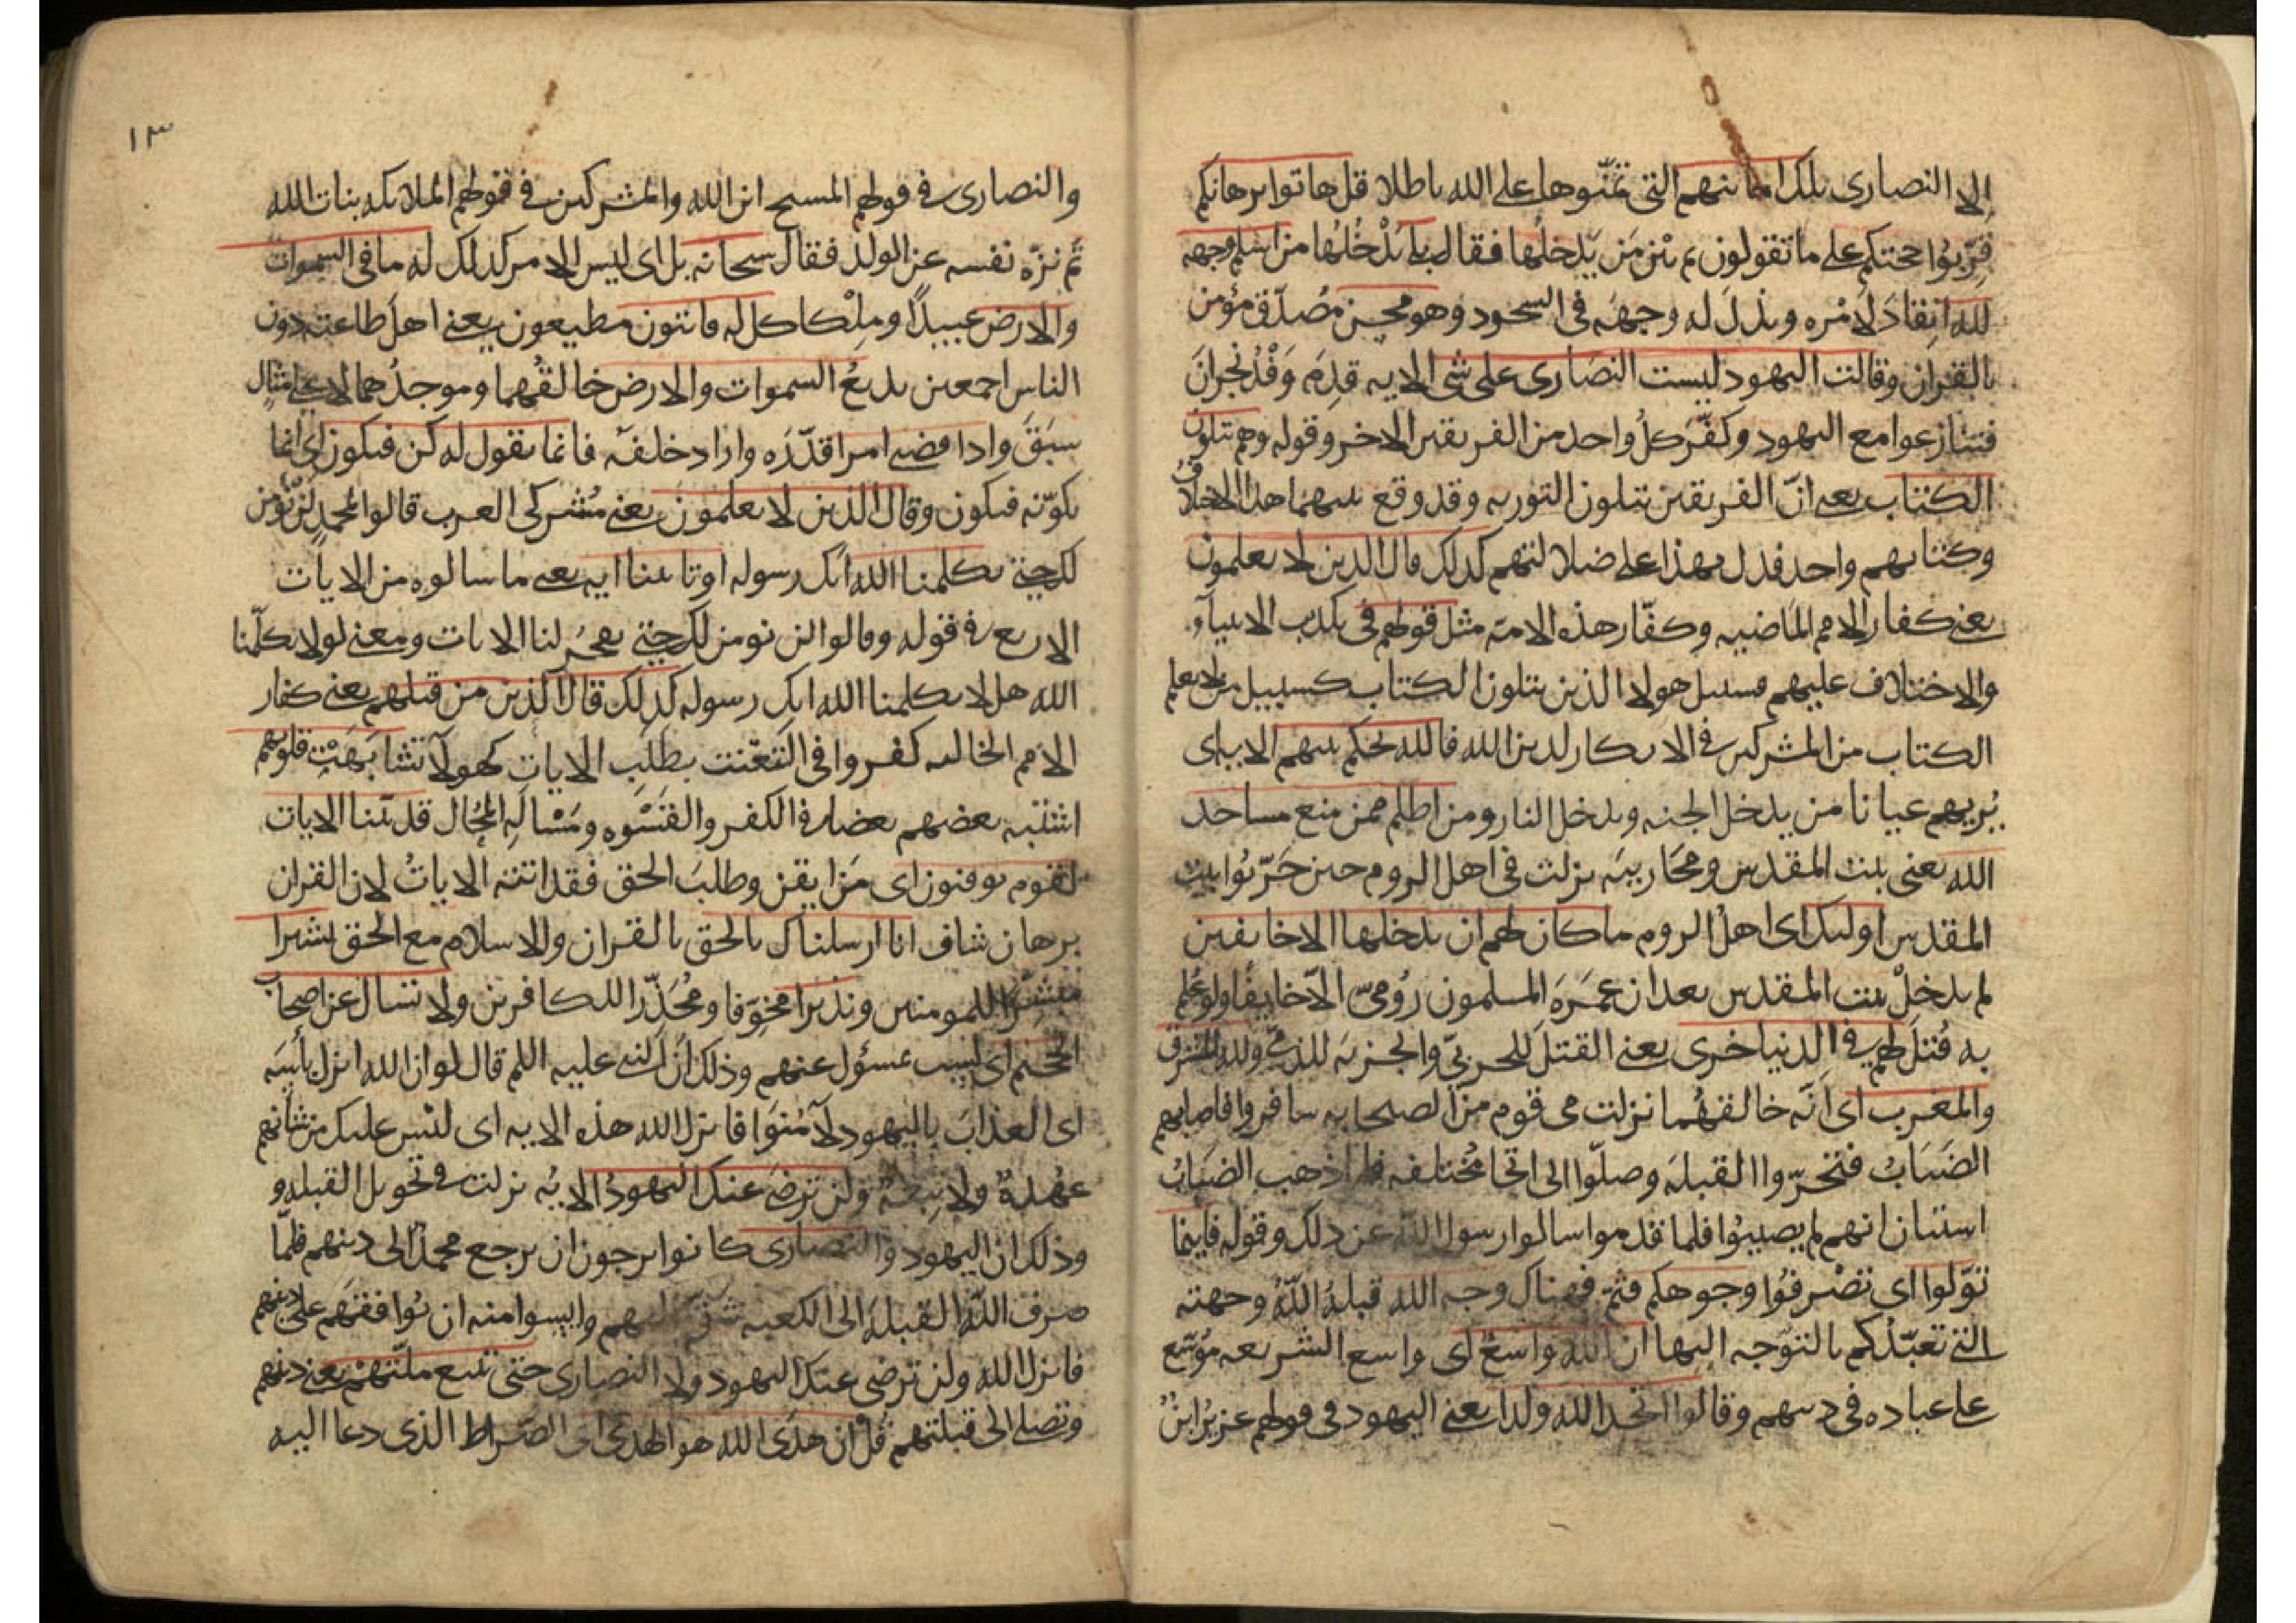 الا النصارى تلك امانيهم التى تمنّوها على الله باطلا قل هاتوا برهانكم
قرّبُوا حجتكم على ما تقولون ثم بيّن مَن يَدخلُها فقال بلى يَدْخُلُها من اسلم وجهه
لله انقادَ لَامْره وبذلَ له وجهَه فى السجود وهو محسن مُصدّق مؤمن
بالقران وقالت اليهود ليست النصَارى على شى الايه قدِمَ وَفْدُ نَجْرانَ
فتنازعوا مع اليهود وكفّرَ كلُ واحد من الفريقين الاخر وقوله وهم يتلون
الكتاب يعنى انّ الفريقين يتلون التوريه وقد وقع بينهما هذا الاختلافُ
وكتابهم واحد فدل بهذا على ضلالتهم كذلك قال الذين لا يعلمون
يعنى كفار الامم الماضيه وكفّار هذه الامة مثل قولهم فى تكذيب الانبيآء
والاختلاف عليهم فسبيل هولا الذين يتلون الكتاب كسبيل من لا يعلم
الكتاب من المشركين فى الانكار لدين الله فالله يحكم بينهم الايه اى
يُريهم عيانا من يدخل الجنه ويدخل النار ومن اظلم ممن منع مساجد
الله يعنى بيت المقدس ومحَاريبَه نزلت فى اهل الروم حين خَرّبُوا بيت
المقدس اوليك اى اهل الروم ما كان لهم ان يدخلها الا خايفين
لم يدخلْ بيت المقدس بعد ان عمَرَه المسلمون رُومىّ الّا خايفًا ولو عُلم
به قُتلَ لهم فى الدنيا خزى يعنى القتلَ للحربىّ والجزيه للذمىّ ولله المشرق
والمغرب اى انّه خالقهُما نزلت فى قوم من الصحابه سافروا فاصابهم
الضَبَابُ فتحرّوا القبلَه وصلّوا الى انحا مُختلفه فلما ذهب الضبَابُ
استبان انهم لم يصيبُوا فلما قدموا سالوا رسول الله عن ذلك وقوله فاينما
تولّوا اى تصْرفُوا وجوهكم فثمّ فهناك وجه الله قبلةُ اللّٰهُ وجهته
التى تعبّدكم بالتوجه اليها ان الله واسعٌ اى واسع الشريعه مُوسّع
على عباده فى دينهم وقالوا اتخذ الله ولدا يعنى اليهود فى قولهم عزيرُ ابنُ
١٣
والنصارى فى قولهم المسيح ابن الله والمشركين فى قولهم الملايكه بنات الله
ثم نزّه نفسه عن الولد فقال سبحانه بل اى ليس الامر كذلك له ما فى السموات
والارض عبيدًا وملْكا كل له قانتون مطيعون يعنى اهل طاعته دون
الناس اجمعين بديعُ السموات والارض خالقُهما وموجدُهما لا على مثال
سبَقَ واذا قضى امرا قدّرَه واراد خلقه فانما يقول له كن فيكون اى انما
يكوّنه فيكون وقال الذين لا يعلمون يعنى مُشركى العرب قالوا لمحمدٍ لن نُؤمن
لك حتى يكلمنا الله انك رسوله او تاتينا ايه يعنى ما سالوه من الايات
الاربع فى قوله وقالوا لن نومن لك حتى تفجُر لنا الايات ومعنى لولا يكلّمنا
الله هلا يكلمنا الله انك رسوله كذلك قال الذين من قبلهم يعنى كفار
الامم الخاليه كفروا فى التعنّت بطلَبِ الايات كهولآ تشابَهَتْ قلوبهم
اشتبه بعضهم بعضا فى الكفر والقَسْوه ومَسْالَهِ المُحال قد بيّنا الايات
لقوم يوقنون اى مَن ايقن وطلبَ الحق فقد اتته الاياتُ لان القران
برهان شاف انا ارسلناك بالحق بالقران والاسلام مع الحق بشيرا
مبشرًا للمومنين ونذيرا مخوّفا ومُحَذّرا للكافرين ولا تسال عن اصحاب
الجحيم اى لست بمسؤول عنهم وذلك انّ النبى عليه السلم قال لو ان الله انزل بأسَه
اى العذابَ باليهود لآمُنوا فانزل الله هذه الايه اى ليس عليك من شانهم
عهْدةٌ ولا تبِعةٌ ولن ترضى عنك اليهودُ الايُه نزلت فى تحويل القبله و
وذلك ان اليهود والنصارى كانوا يرجون ان يرجع محمدٌ الى دينهم فلمّا
صرف اللّٰه القبلةَ الى الكعبه شقّ عليهم وايسوا منه ان يُوافقهَم على دينهم
فانزل الله ولن ترضى عنك اليهود ولا النصارى حتى تتبع ملّتهمْ يعنى دينهم
وتصلى الى قبلتهم قُلْ ان هدَى الله هو الهدى اى الصّراط الذى دعا اليه